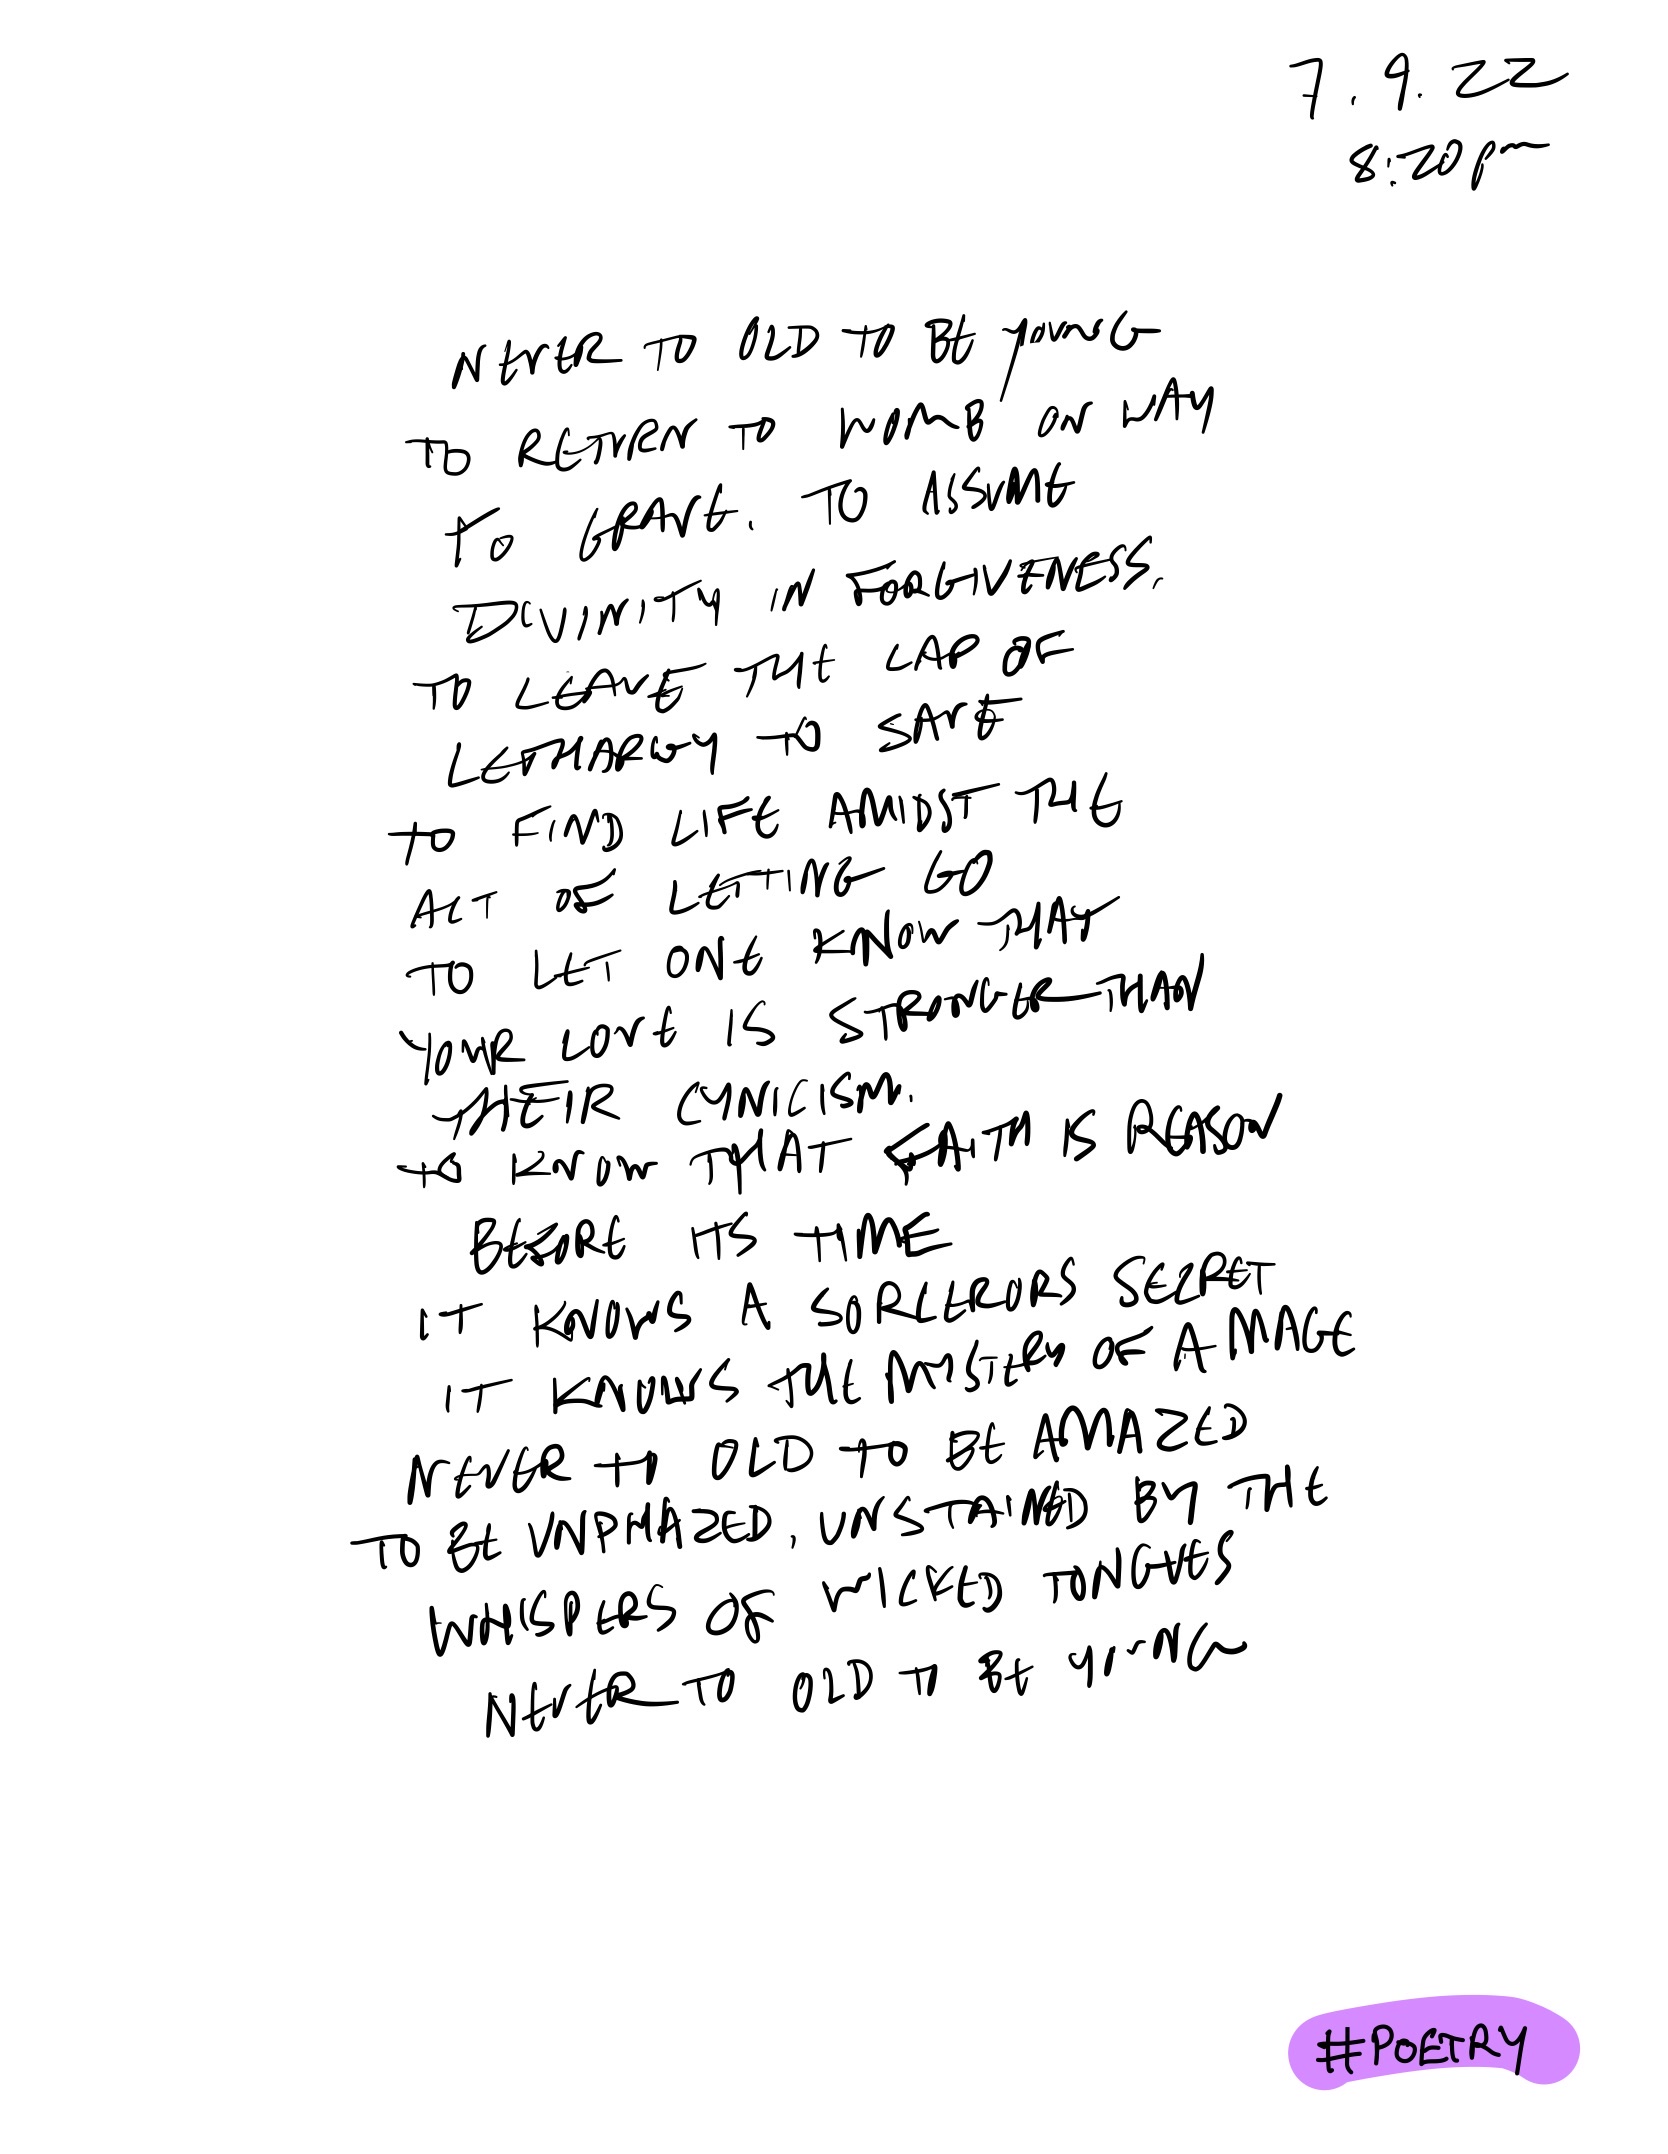 7.9.22
8:20pm
NEVER TO OLD TO BE YOUNG
TO RETURN TO WOMB ON WAY
TO GRAVE. TO ASSUME
DIVINITY IN FORGIVENESS.
TO LEAVE THE LAP OF
LETHARGY TO SAVE
TO FIND LIFE AMIDST THE
ACT OF LETTING GO
TO LET ONE KNOW THAT
YOUR LOVE IS STRONGER THAN
THEIR CYNICISM.
TO KNOW THAT FAITH IS REASON
BEFORE ITS TIME
IT KNOWS A SORCERORS SECRET
IT KNOWS THE MYSTERY OF A MAGE
NEVER TO OLD TO BE AMAZED
TO BE UNPHAZED, UNSTAINED BY THE
WHISPERS OF WICKED TONGUES
NEVER TO OLD TO BE YOUNG
#POETRY